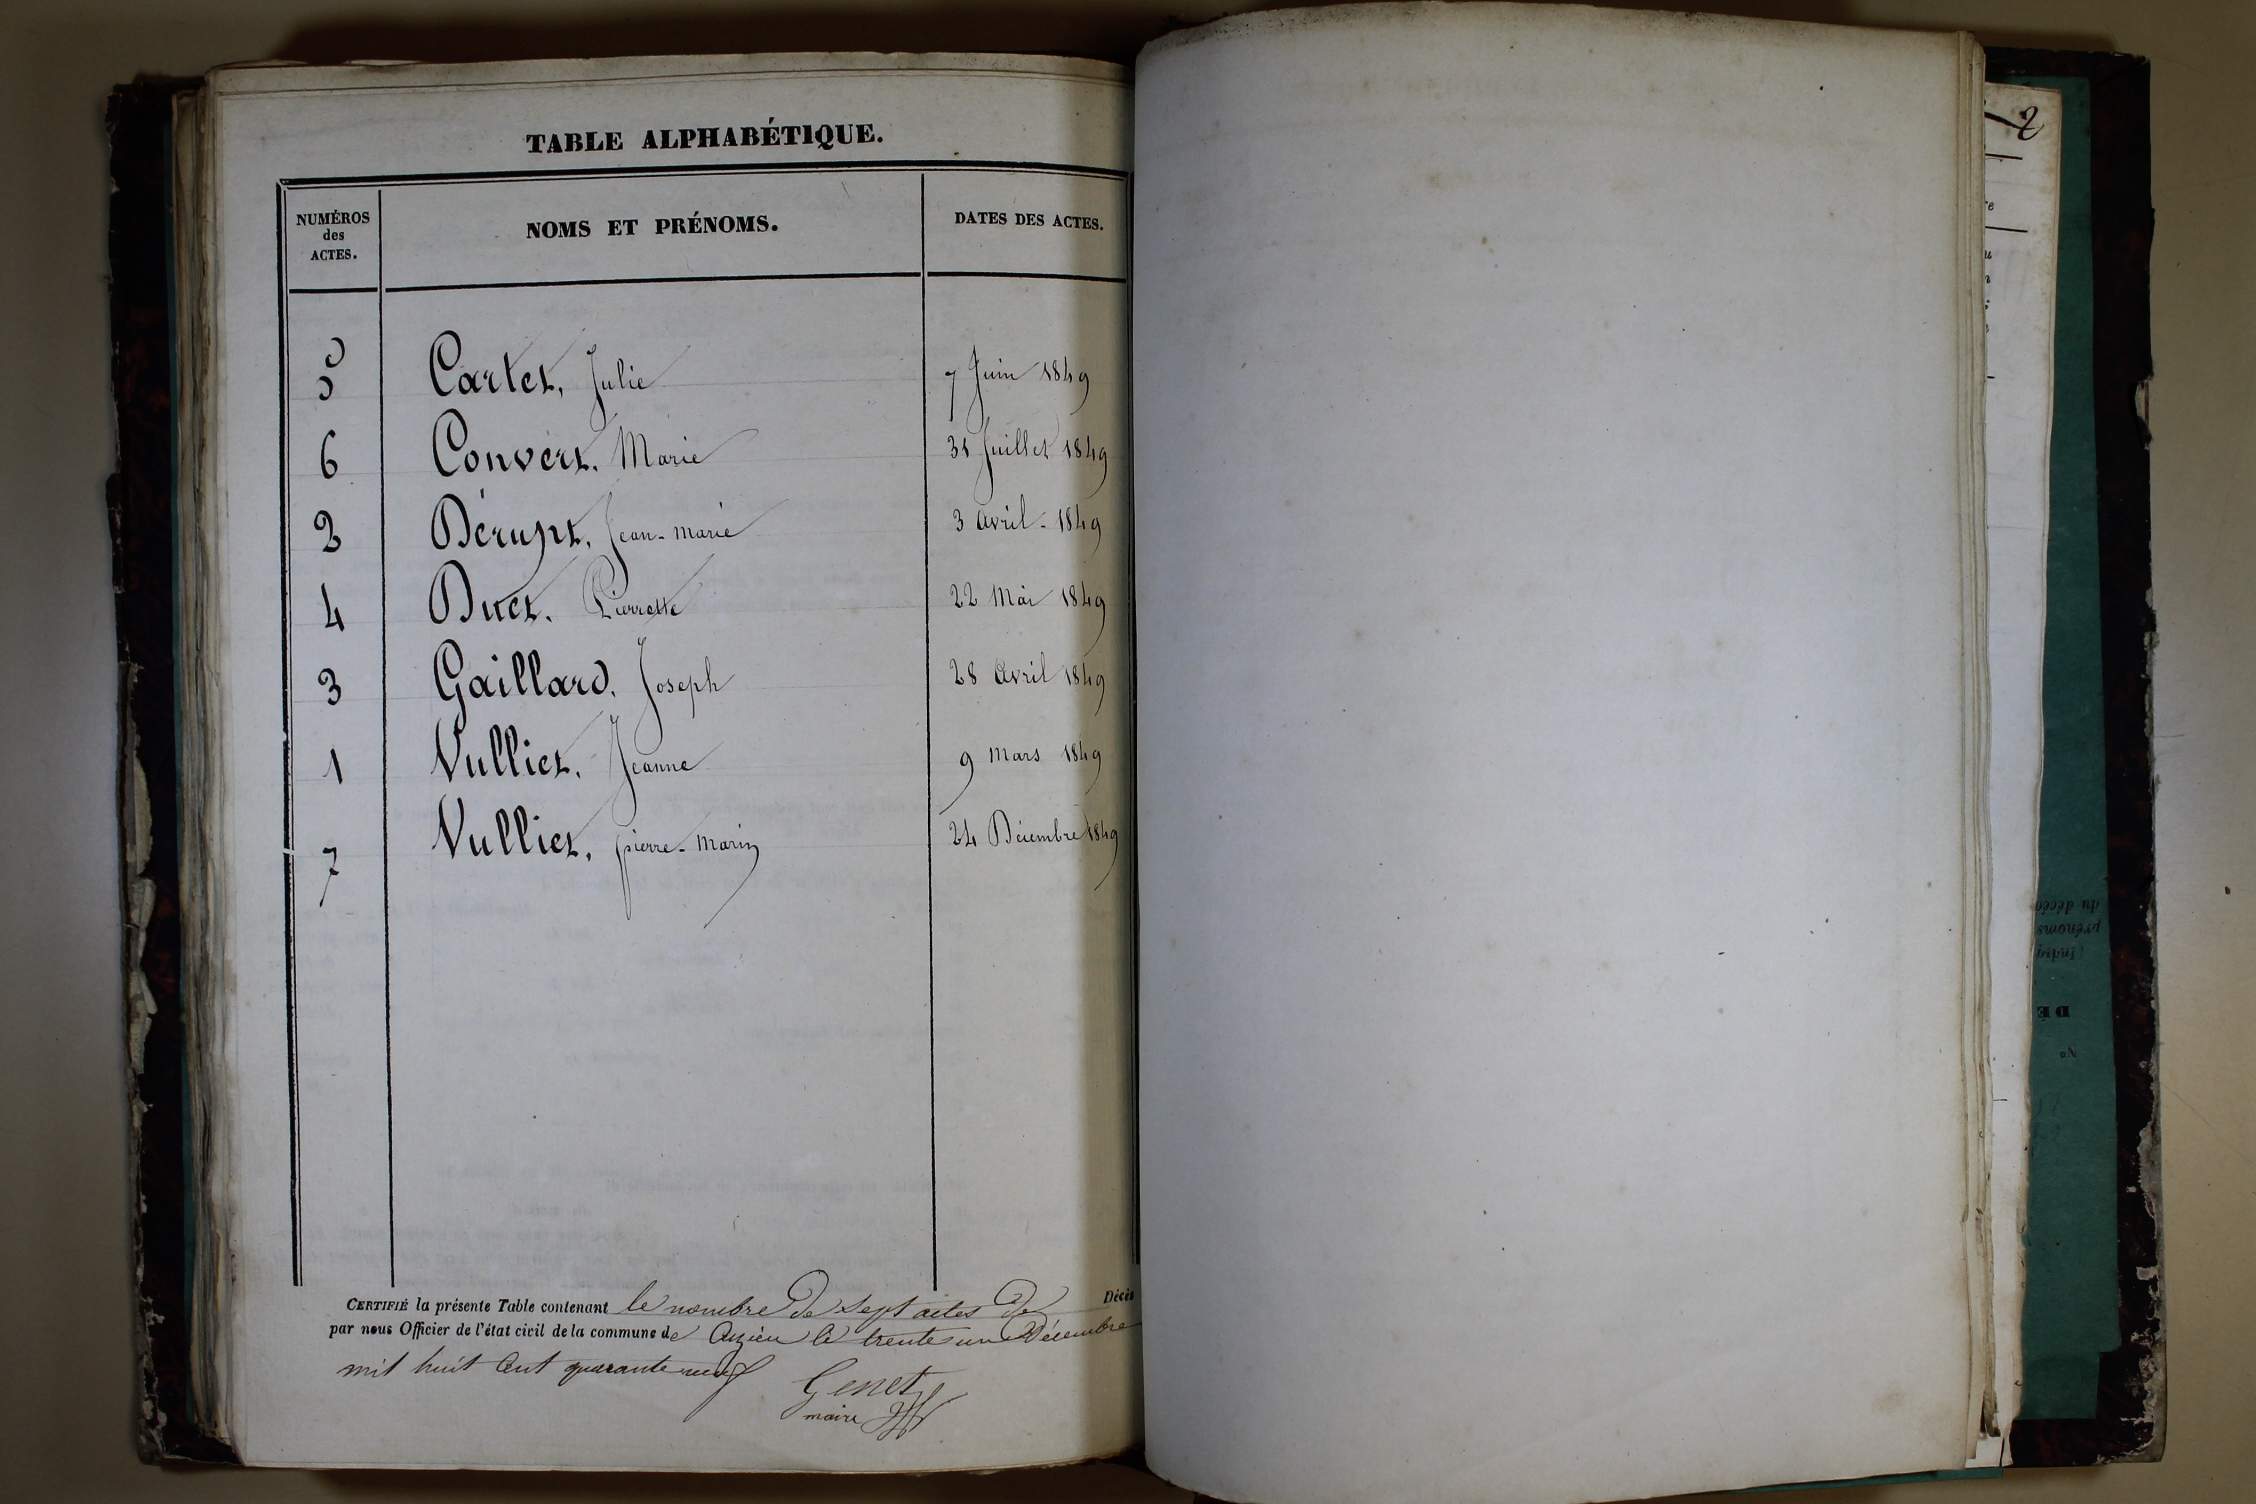 TABLE ALPHABÉTIQUE.
NUMÉROS
des
ACTES.
NOMS ET PRÉNOMS.
DATES DES ACTES.
5 Cartet, Julie 7 Juin 1849
6 Convert, Marie 31 Juillet 1849
2 Dérupt, Jean-Marie 3 avril - 1849
4 Duet, Pierrette 22 Mai 1849
3 Gaillard, Joseph 28 avril 1849
1 Vulliet, Jeanne 9 Mars 1849
7 Vulliet, pierre-Marin 24 Décembre 1849
CERTIFIÉ la présente Table contenant le nombre de Sept actes de Décès
par nous Officier de l'état civil de la commune de le trente un Décembre
mil huit Cent quarante neuf
Genet
maire
2
No
DÉ
prénoms
du décéd